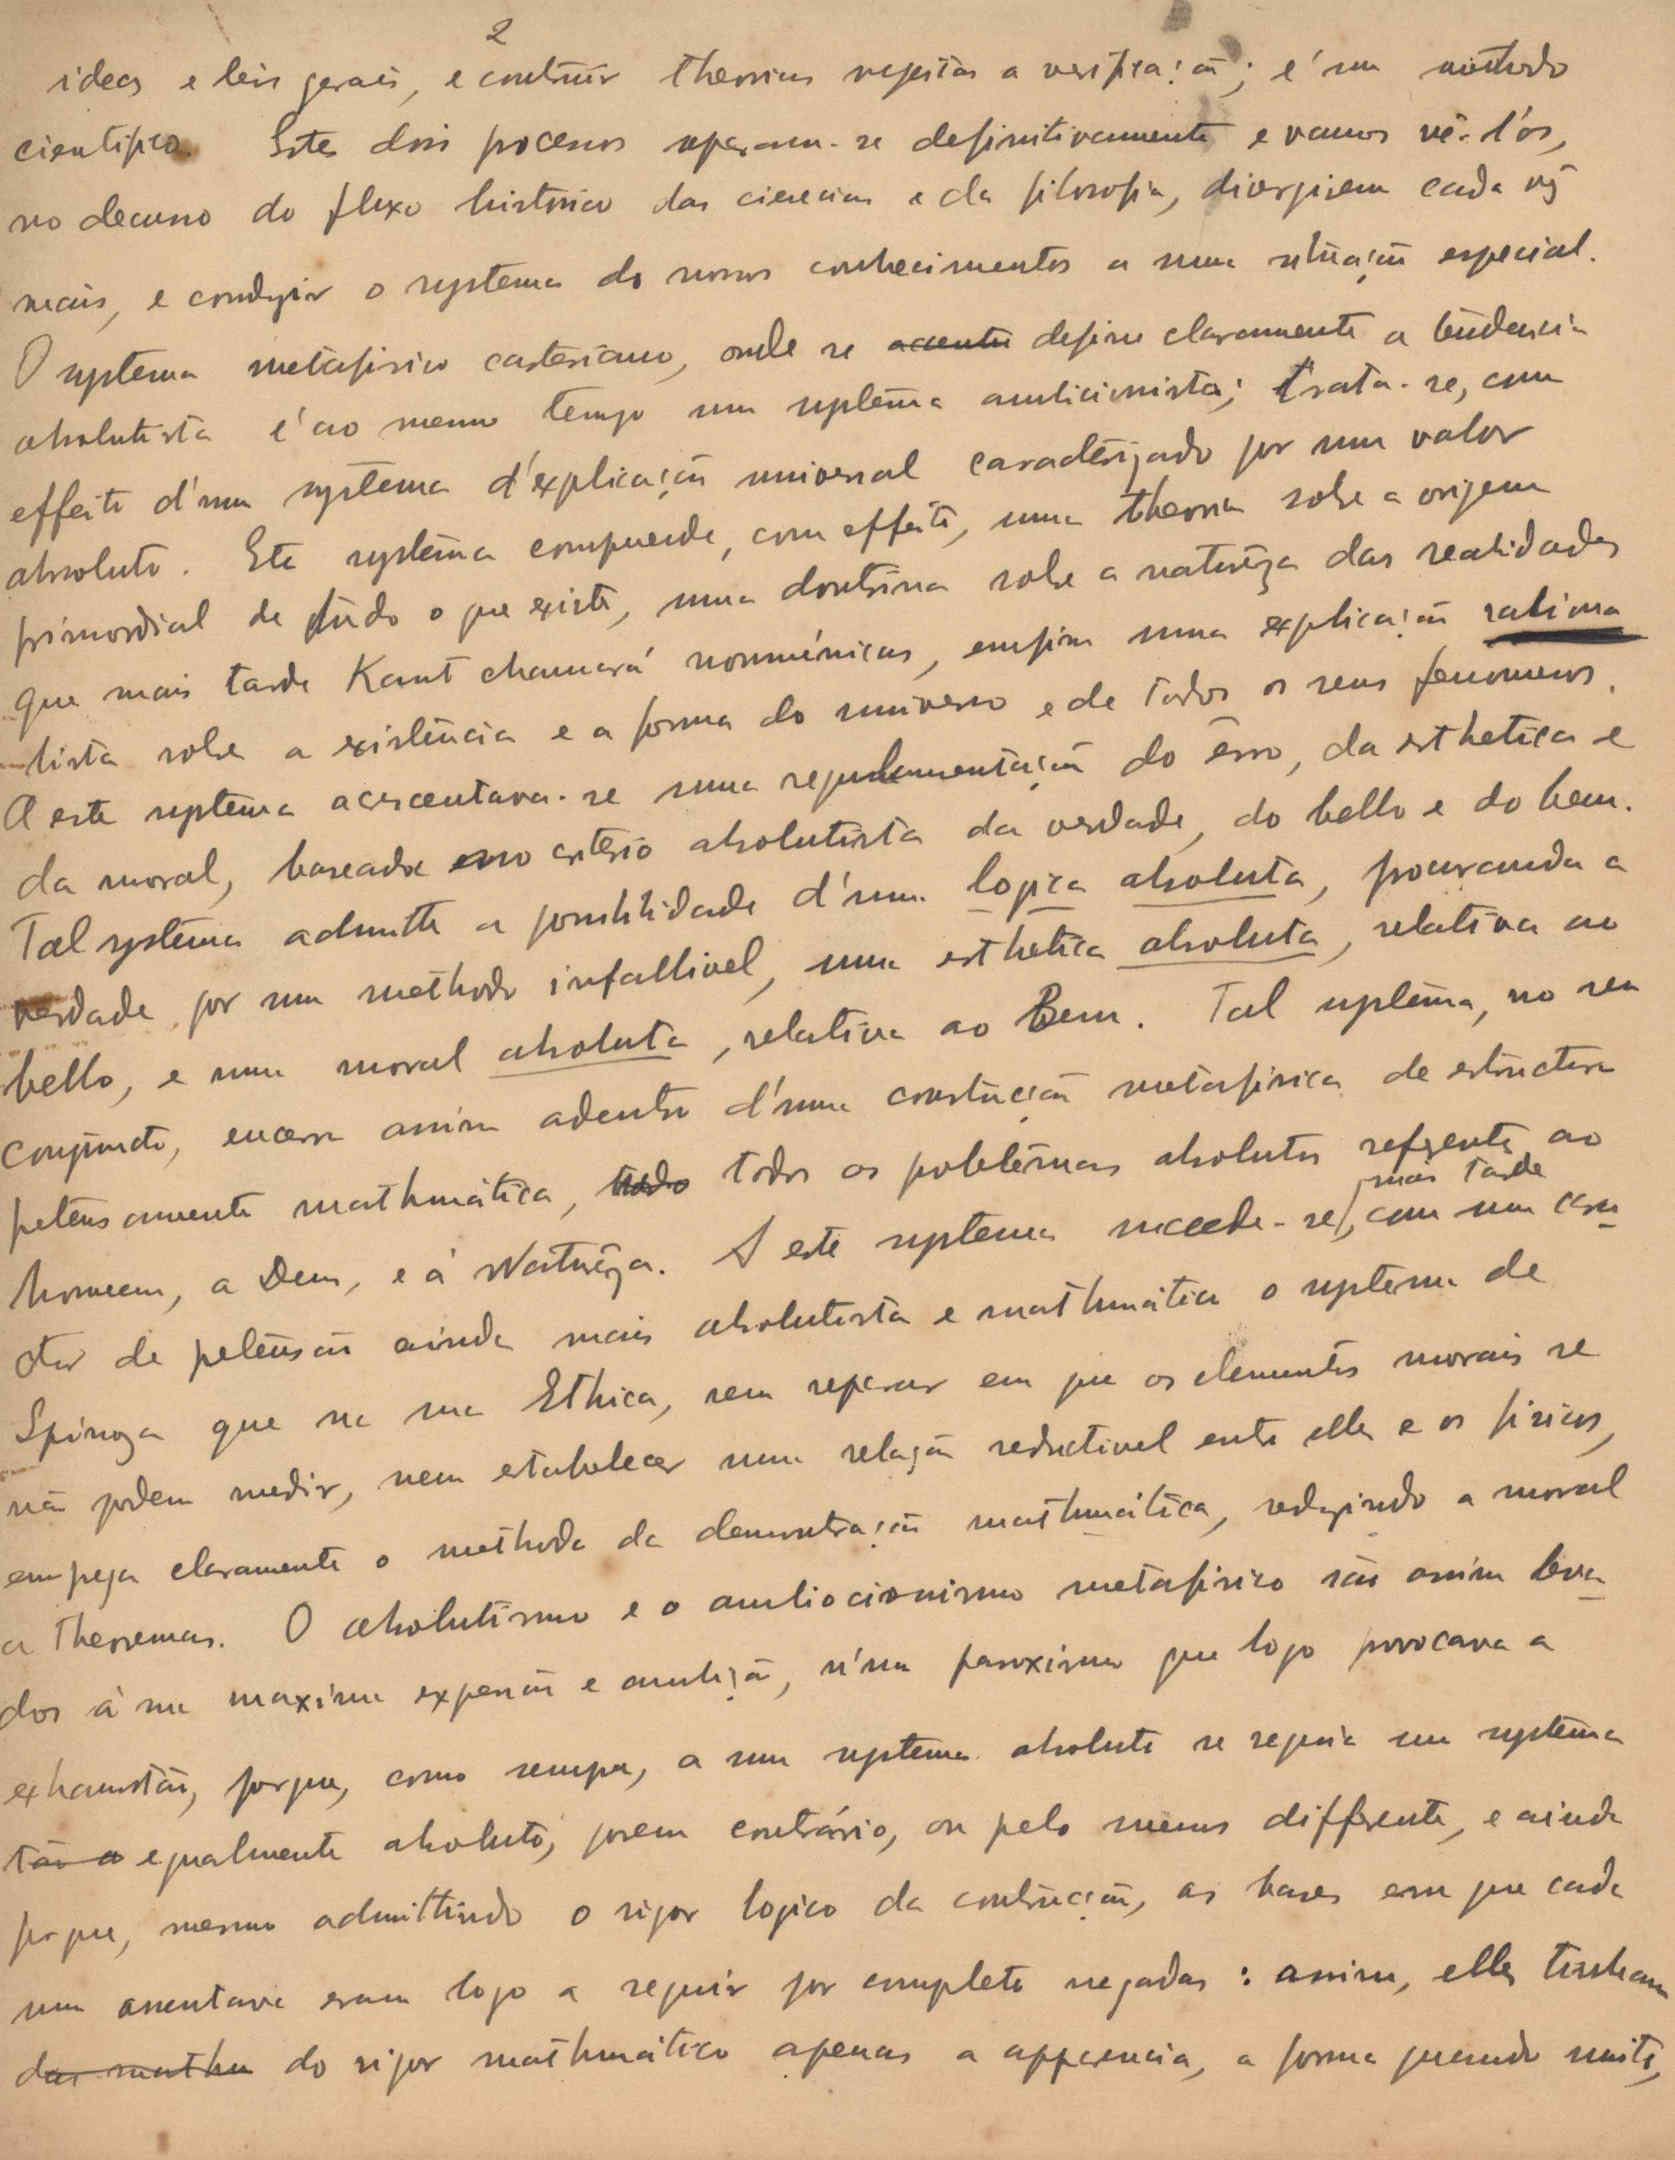 2
ideas e leis gerais, e contruir theorias sujeitas a verificação; é um méthodo
cientifico. Estes dois processos separam-se definitivamente e vamos vê-l'os,
no decurso do fluxo histórico das ciencias e da filosofia, divergirem cada vêz
mais, e conduzir o systema dos nossos conhecimentos a uma situação especial.
O systema metafisico cartesiano, onde se accentu define claramente a tendencia
absolutista é ao mesmo tempo um systêma ambicionista; trata-se, com
effeito d'um systema d'explicação universal caracterizado por um valor
absoluto. Este systêma comprende, com effeito, uma theoria sobre a origem
primordial de tudo o que existe, uma doutrina sobre a naturêza das realidades
que mais tarde Kant chamará nouménicas, emfim uma explicação raciona
lista sobre a existência e a forma do universo e de todos os seus fenomenos.
A este systema acrescentava-se uma regulamentação do êrro, da esthetica e
da moral, baseada no critério absolutista da verdade, do bello e do bem.
Tal systêma admitte a possibilidade d'uma logica absoluta, procurando a
verdade por um methodo infallivel, uma esthetica absoluta, relativa ao
bello, e uma moral absoluta, relativa ao Bem. Tal systêma, no seu
conjuncto, encerra assim adentro d'uma construção metafisica de estructura
pretensamente mathmática, todo todos os problêmas absolutos referentes ao
homem, a Deus, e á Naturêza. A este systema succede-se, mais tarde, com um cara
cter de pretensão ainda mais absolutista e mathmática o systema de
Spinoza que na sua Ethica, sem reparar em que os elementos morais se
não podem medir, nem estabelecer uma relação reductivel entre elles e os fisicos,
emprega claramente o methodo da demonstração mathmática, reduzindo a moral
a theoremas. O absolutismo e o ambiocionismo metafisico são assim leva
dos á sua maxima expansão e ambição, n'um paroxismo que logo provocava a
exhaustão, porque, como sempre, a um systema absoluto se seguia um systêma
tão a egualmente absoluto, porem contrário, ou pelo menos differente, e ainda
porque, mesmo admittindo o rigor logico da contrução, as bases em que cada
um assentava eram logo a seguir por completo negadas: assim, elles tinham
das mathe do rigor mathmático apenas a apparencia, a forma quando muito,